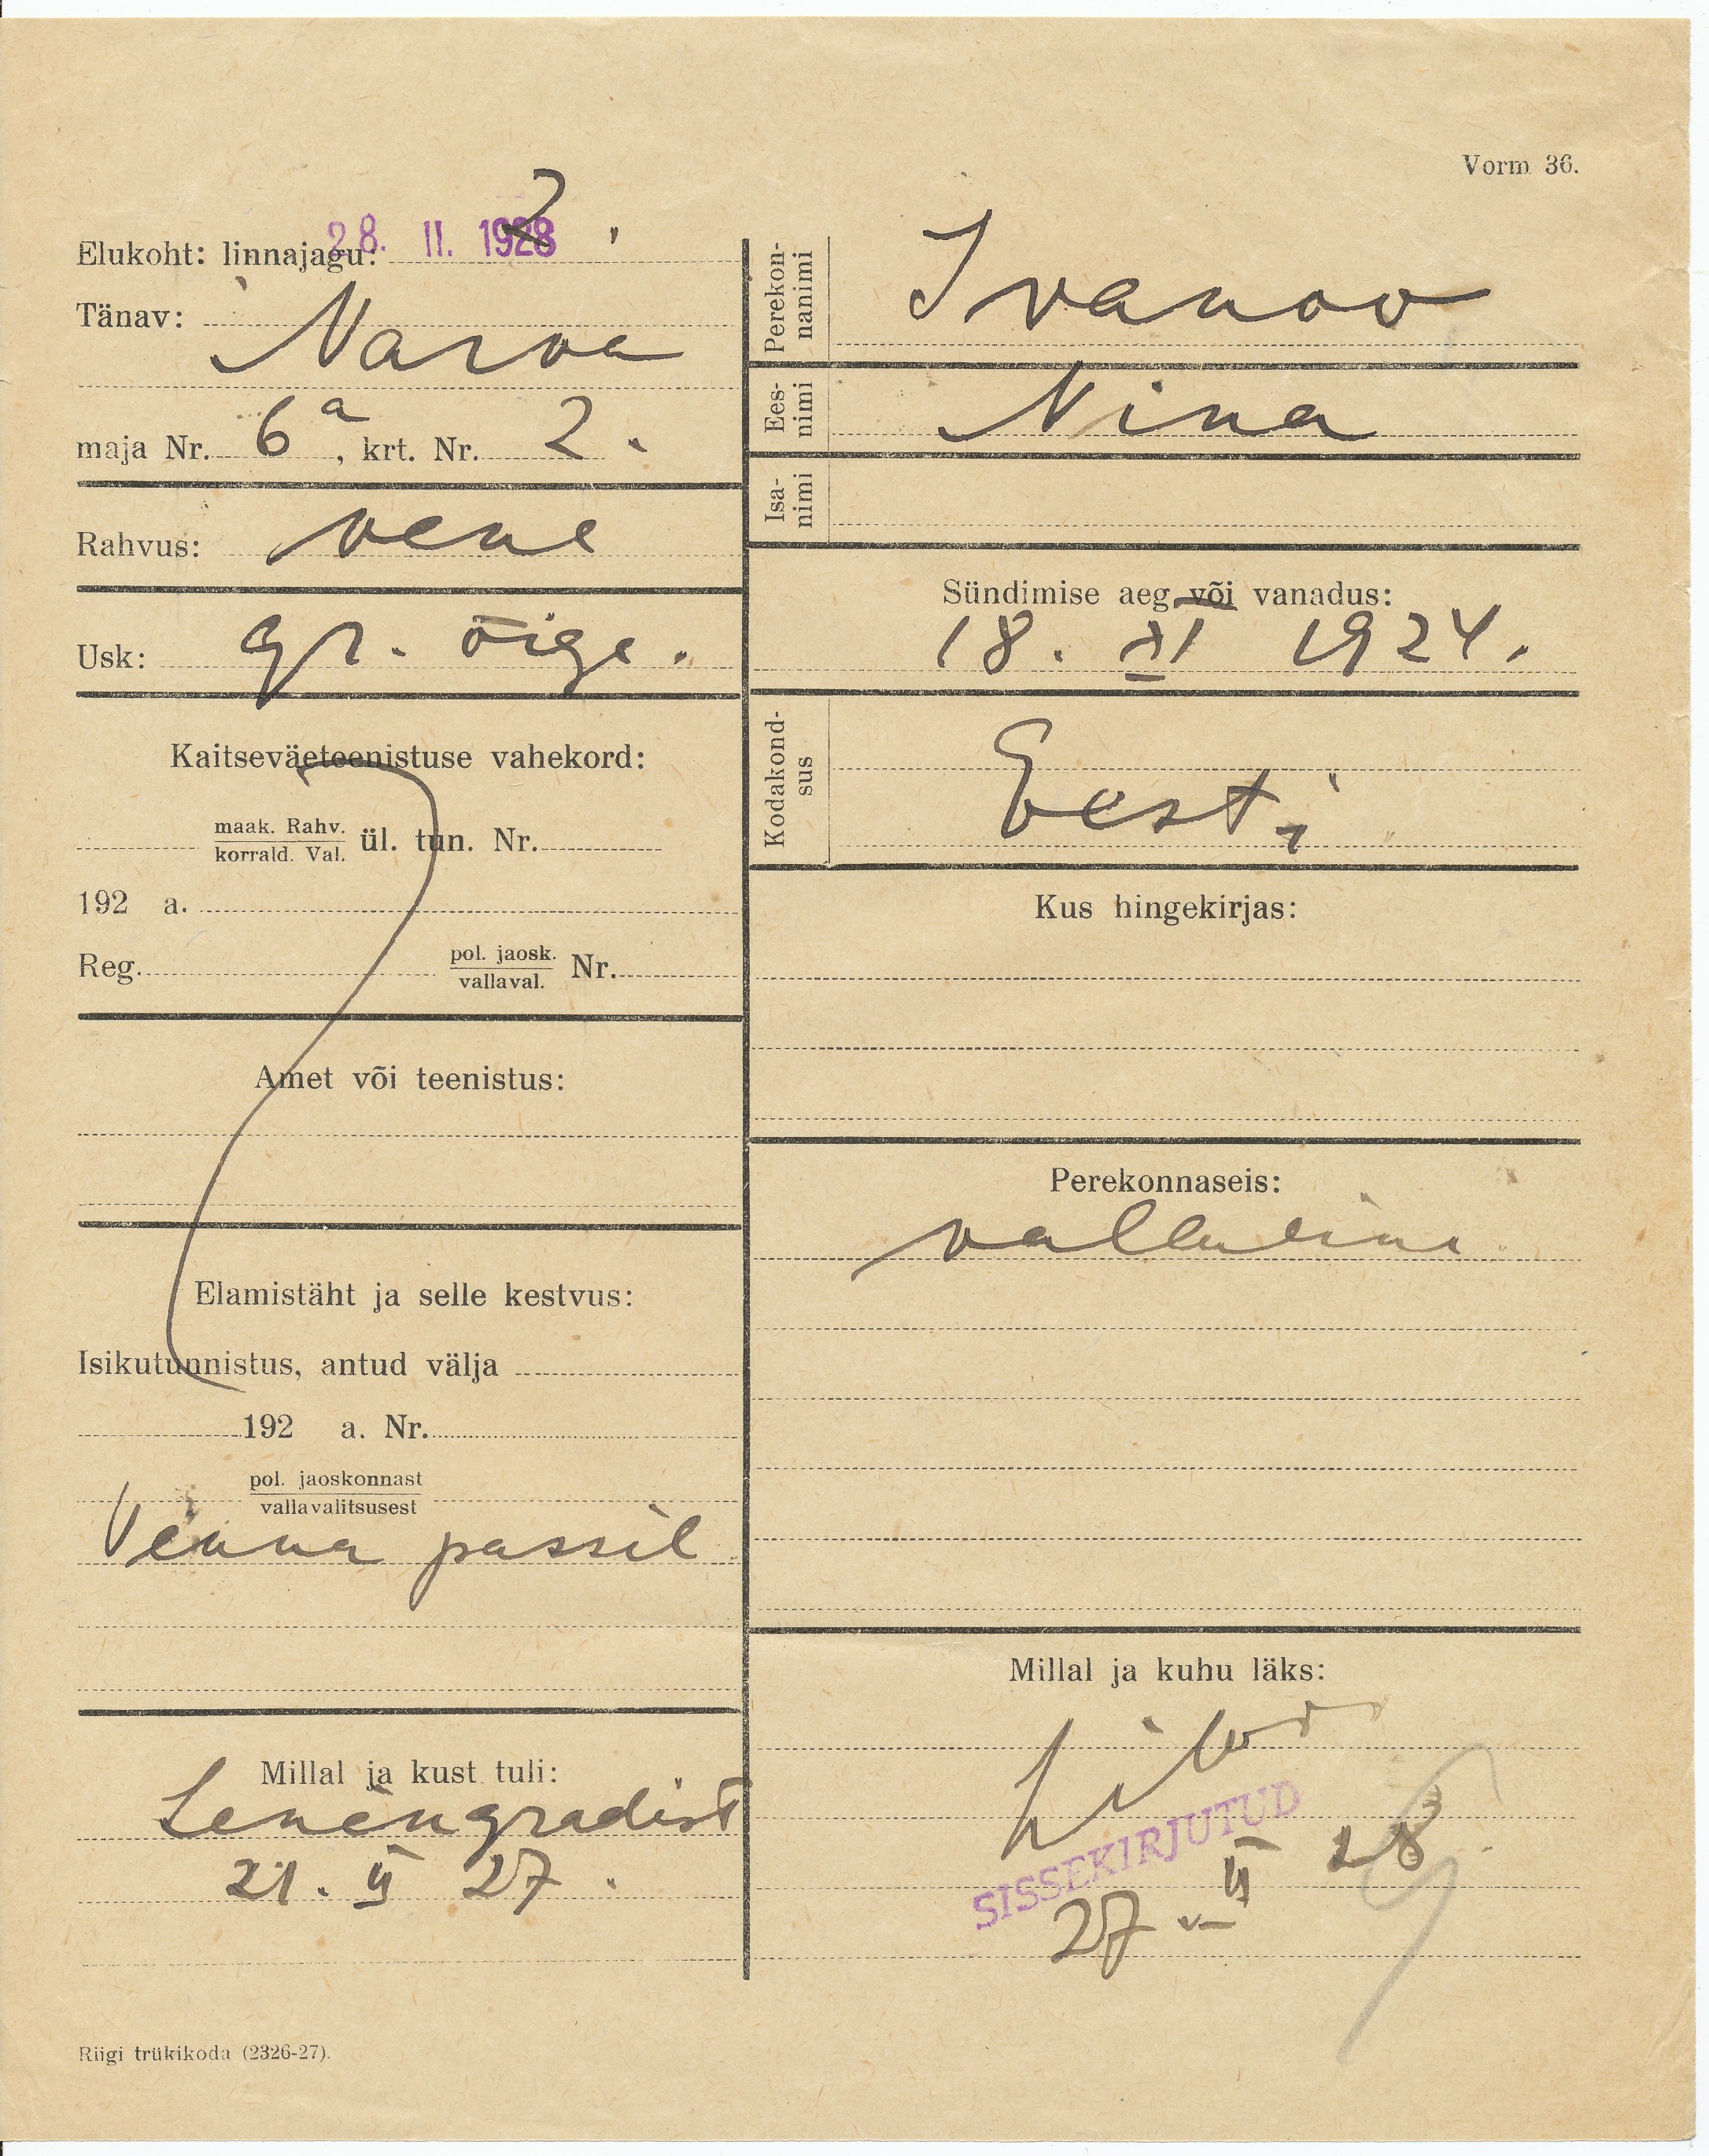 Vorm 36.
28. II. 1928
2.
Elukoht: linnajagu:
Tänav: Narva
maja Nr. 6a, krt. Nr. 2.
Rahvus: vene
Usk: gr. õige.
Kaitseväeteenistuse vahekord:
maak. Rahv.
korrald. Val. ül. tun. Nr.
192 a.
Reg. pol. jaosk.
vallaval. Nr.
Amet või teenistus:
Elamistäht ja selle kestvus:
Isikutunnistus, antud välja
192 a. Nr.
pol. jaoskonnast
vallavalitsusest
Venna passil
Millal ja kust tuli:
Leningradist
21. II 27.
Riigi trükikoda (2326-27).
Perekonnanimi
Ivanov
Eesnimi
Nina
Isanimi
Sündimise aeg või vanadus:
18. XI 1924.
Kodakondsus
Eesti
Kus hingekirjas:
Perekonnaseis:
vallaline
Millal ja kuhu läks:
SISSEKIRJUTUD
27 II 28